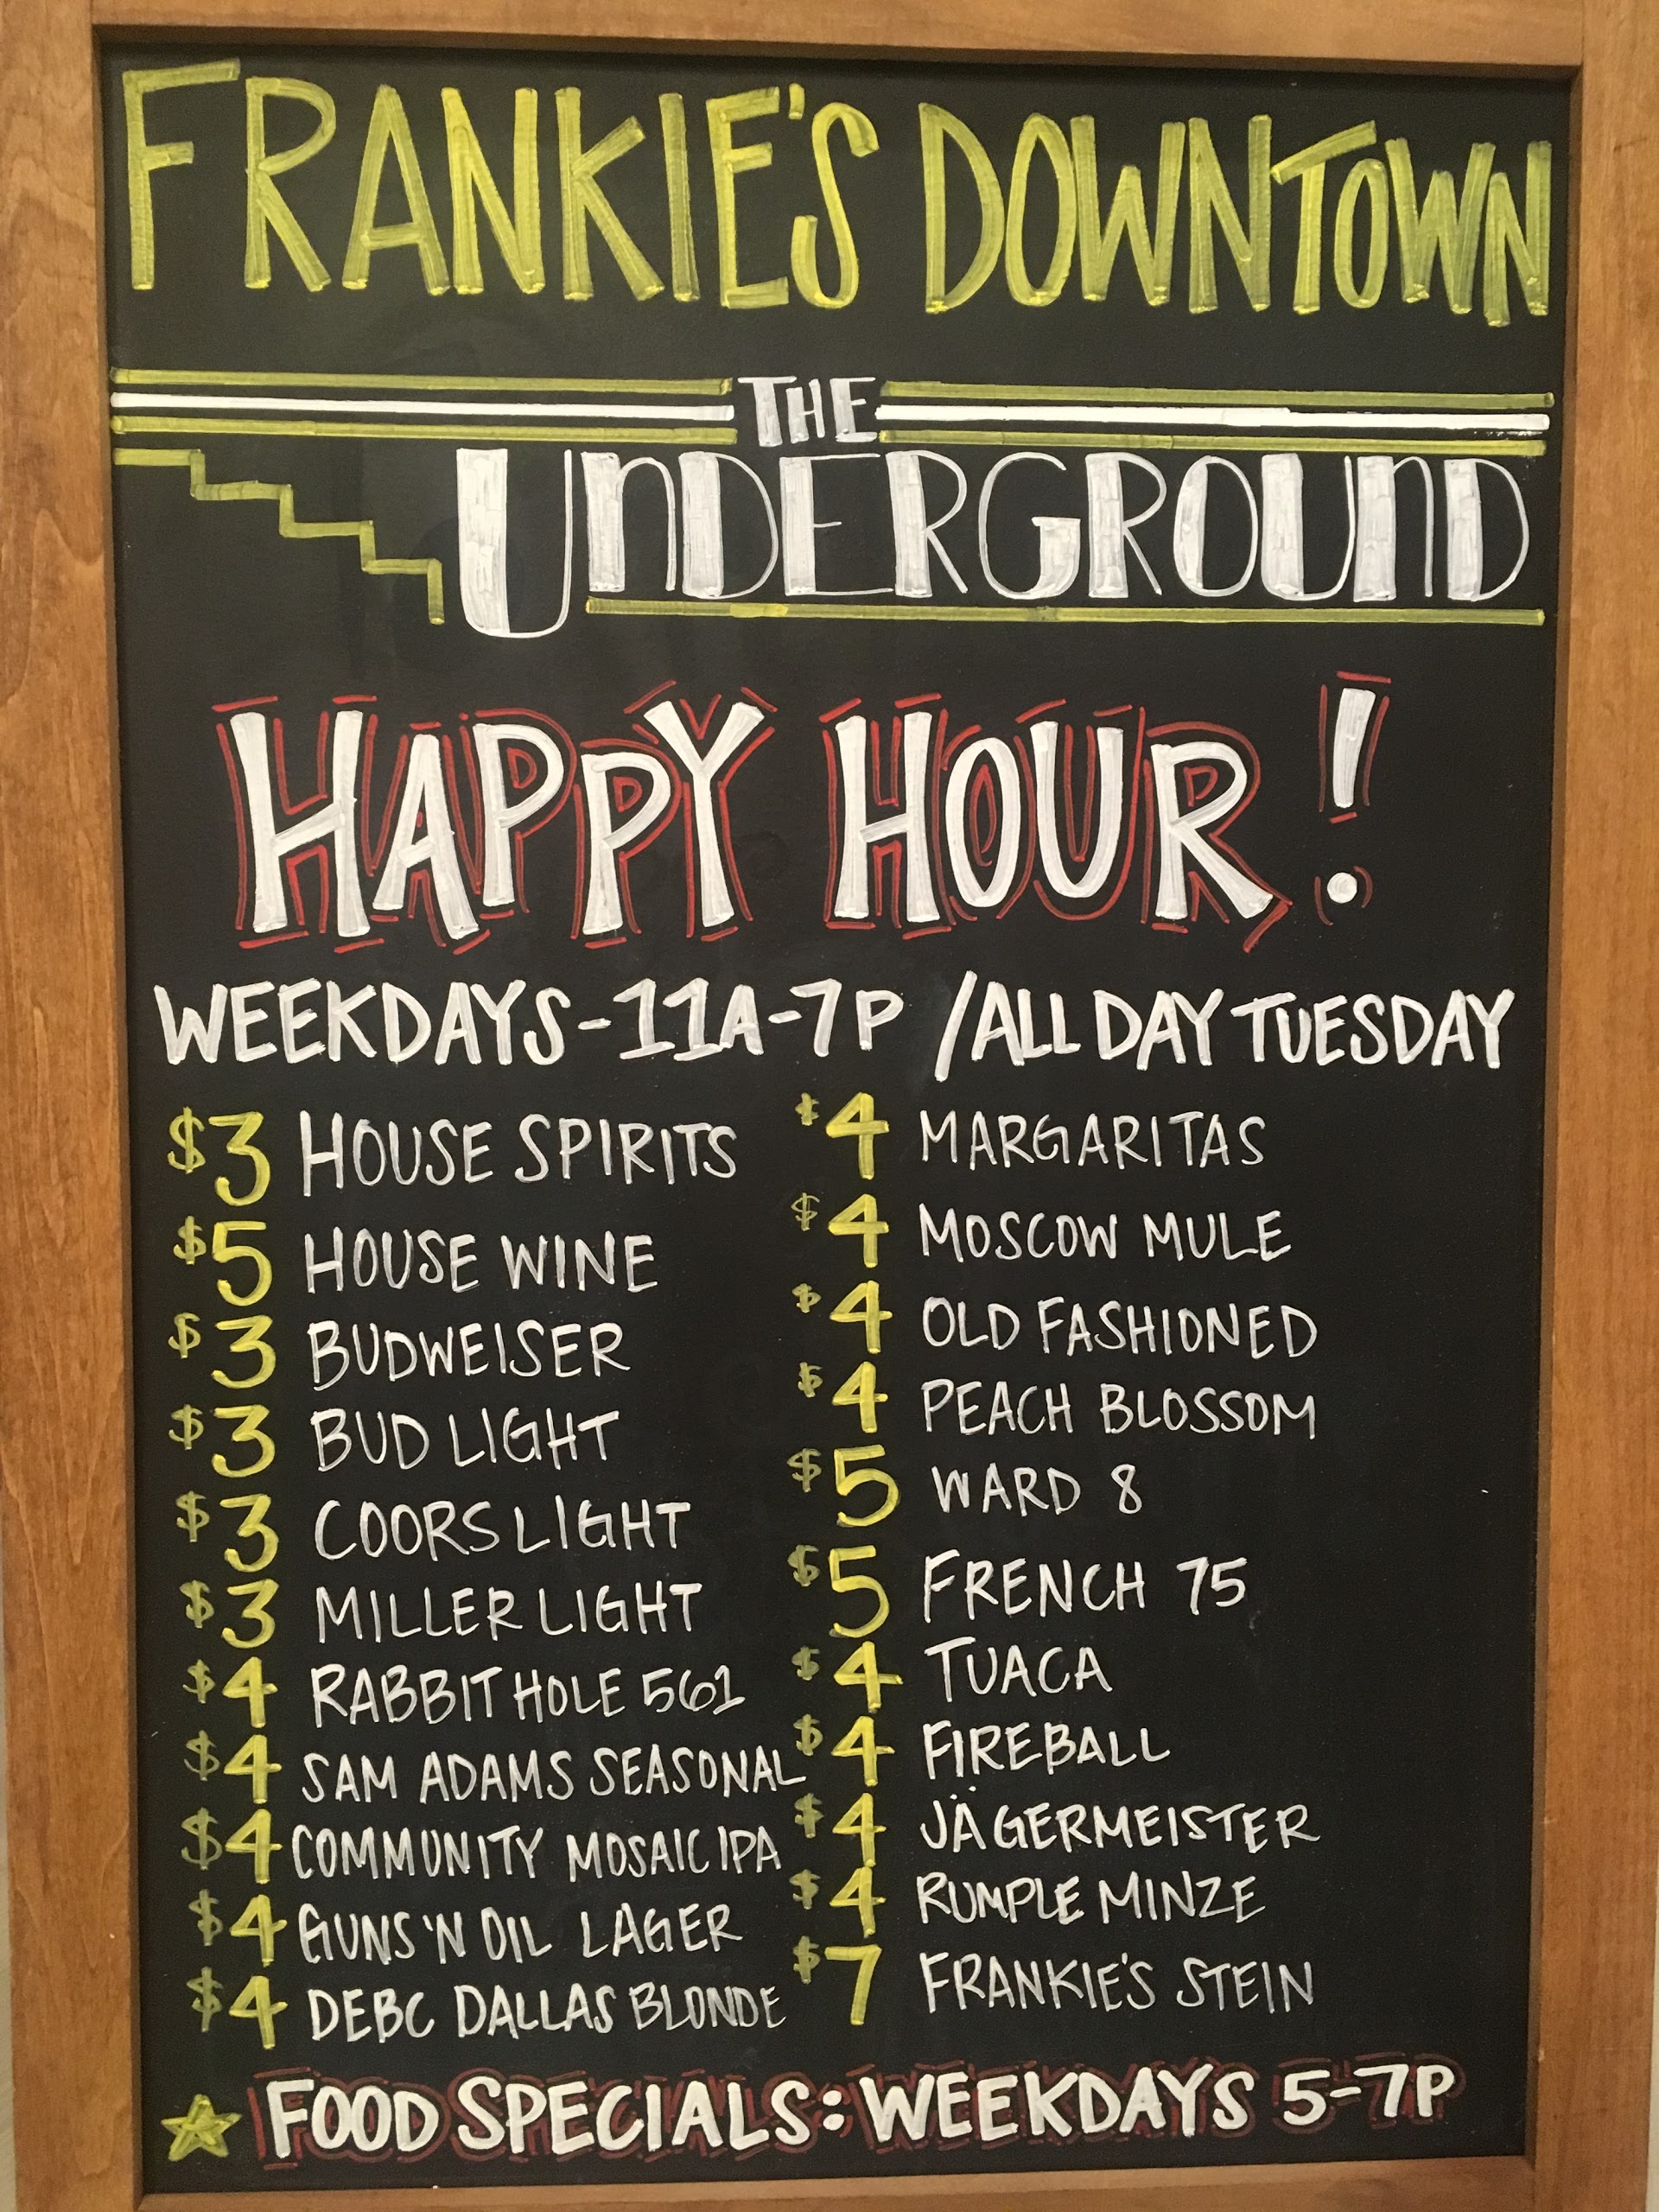 FRANKIE'S DOWNTOWN
THE
UNDERGROUND
HAPPY HOUR!
WEEKDAYS-11A-7P /ALL DAY TUESDAY
$3 HOUSE SPIRITS
$5 HOUSE WINE
$3 BUDWEISER
$3 BUD LIGHT
$3 COORS LIGHT
$3 MILLER LIGHT
$4 RABBIT HOLE 561
$4 SAM ADAMS SEASONAL
$4 COMMUNITY MOSAIC IPA
$4 GUNS 'N OIL LAGER
$4 DEBC DALLAS BLONDE
$4 MARGARITAS
$4 MOSCOW MULE
$4 OLD FASHIONED
$4 PEACH BLOSSOM
$5 WARD 8
$5 FRENCH 75
$4 TUACA
$4 FIREBALL
$4 JÄGERMEISTER
$4 RUMPLE MINZE
$7 FRANKIE'S STEIN
FOOD SPECIALS: WEEKDAYS 5-7P